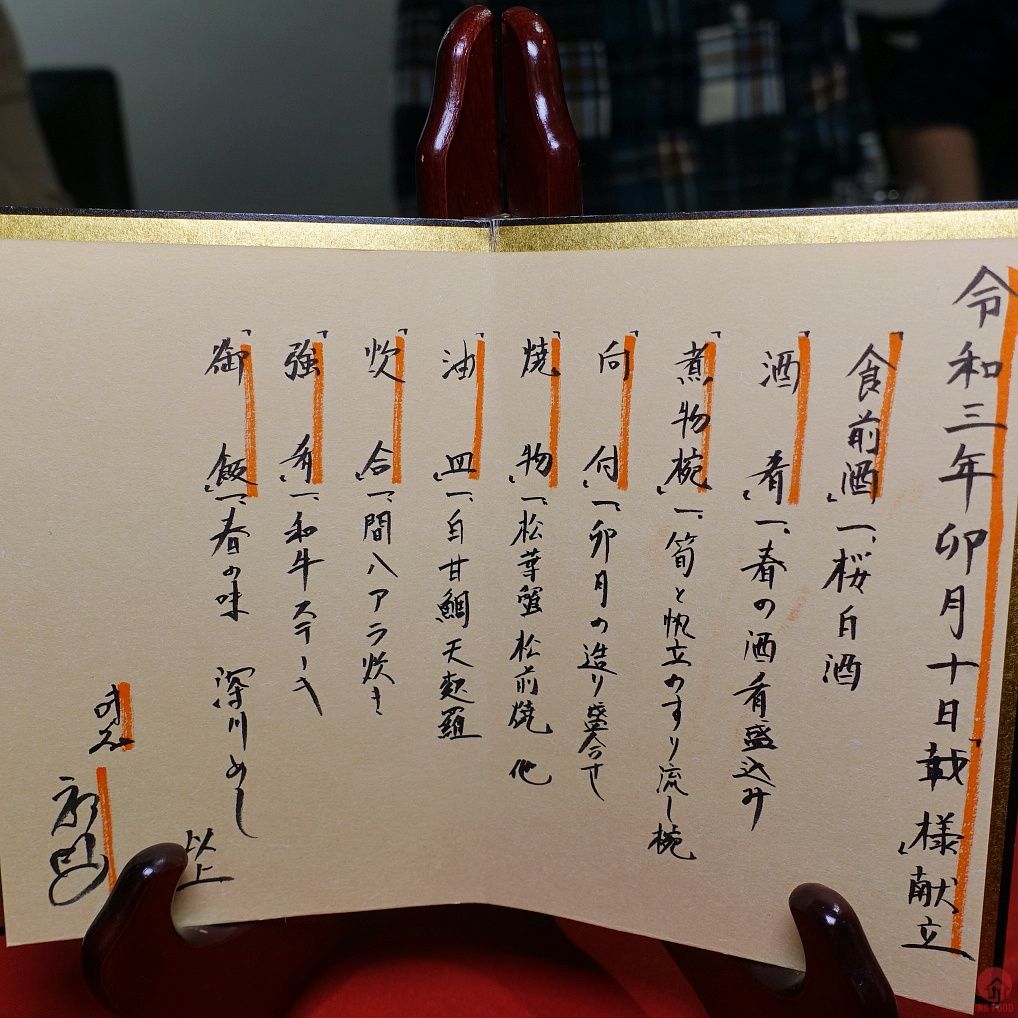 令和三年卯月十日「戴様」献立
「食前酒」一、桜白酒
「酒肴」一、春の酒肴盛込み
「煮物椀」一、筍と帆立のすり流し椀
「向付」一、卯月の造り盛合せ
「焼物」一、松葉蟹松前焼 他
「油皿」一、白甘鯛天麩羅
「炊合」一、間八アラ炊き
「強肴」一、和牛ステーキ
「御飯」一、春の味 深川めし
以上